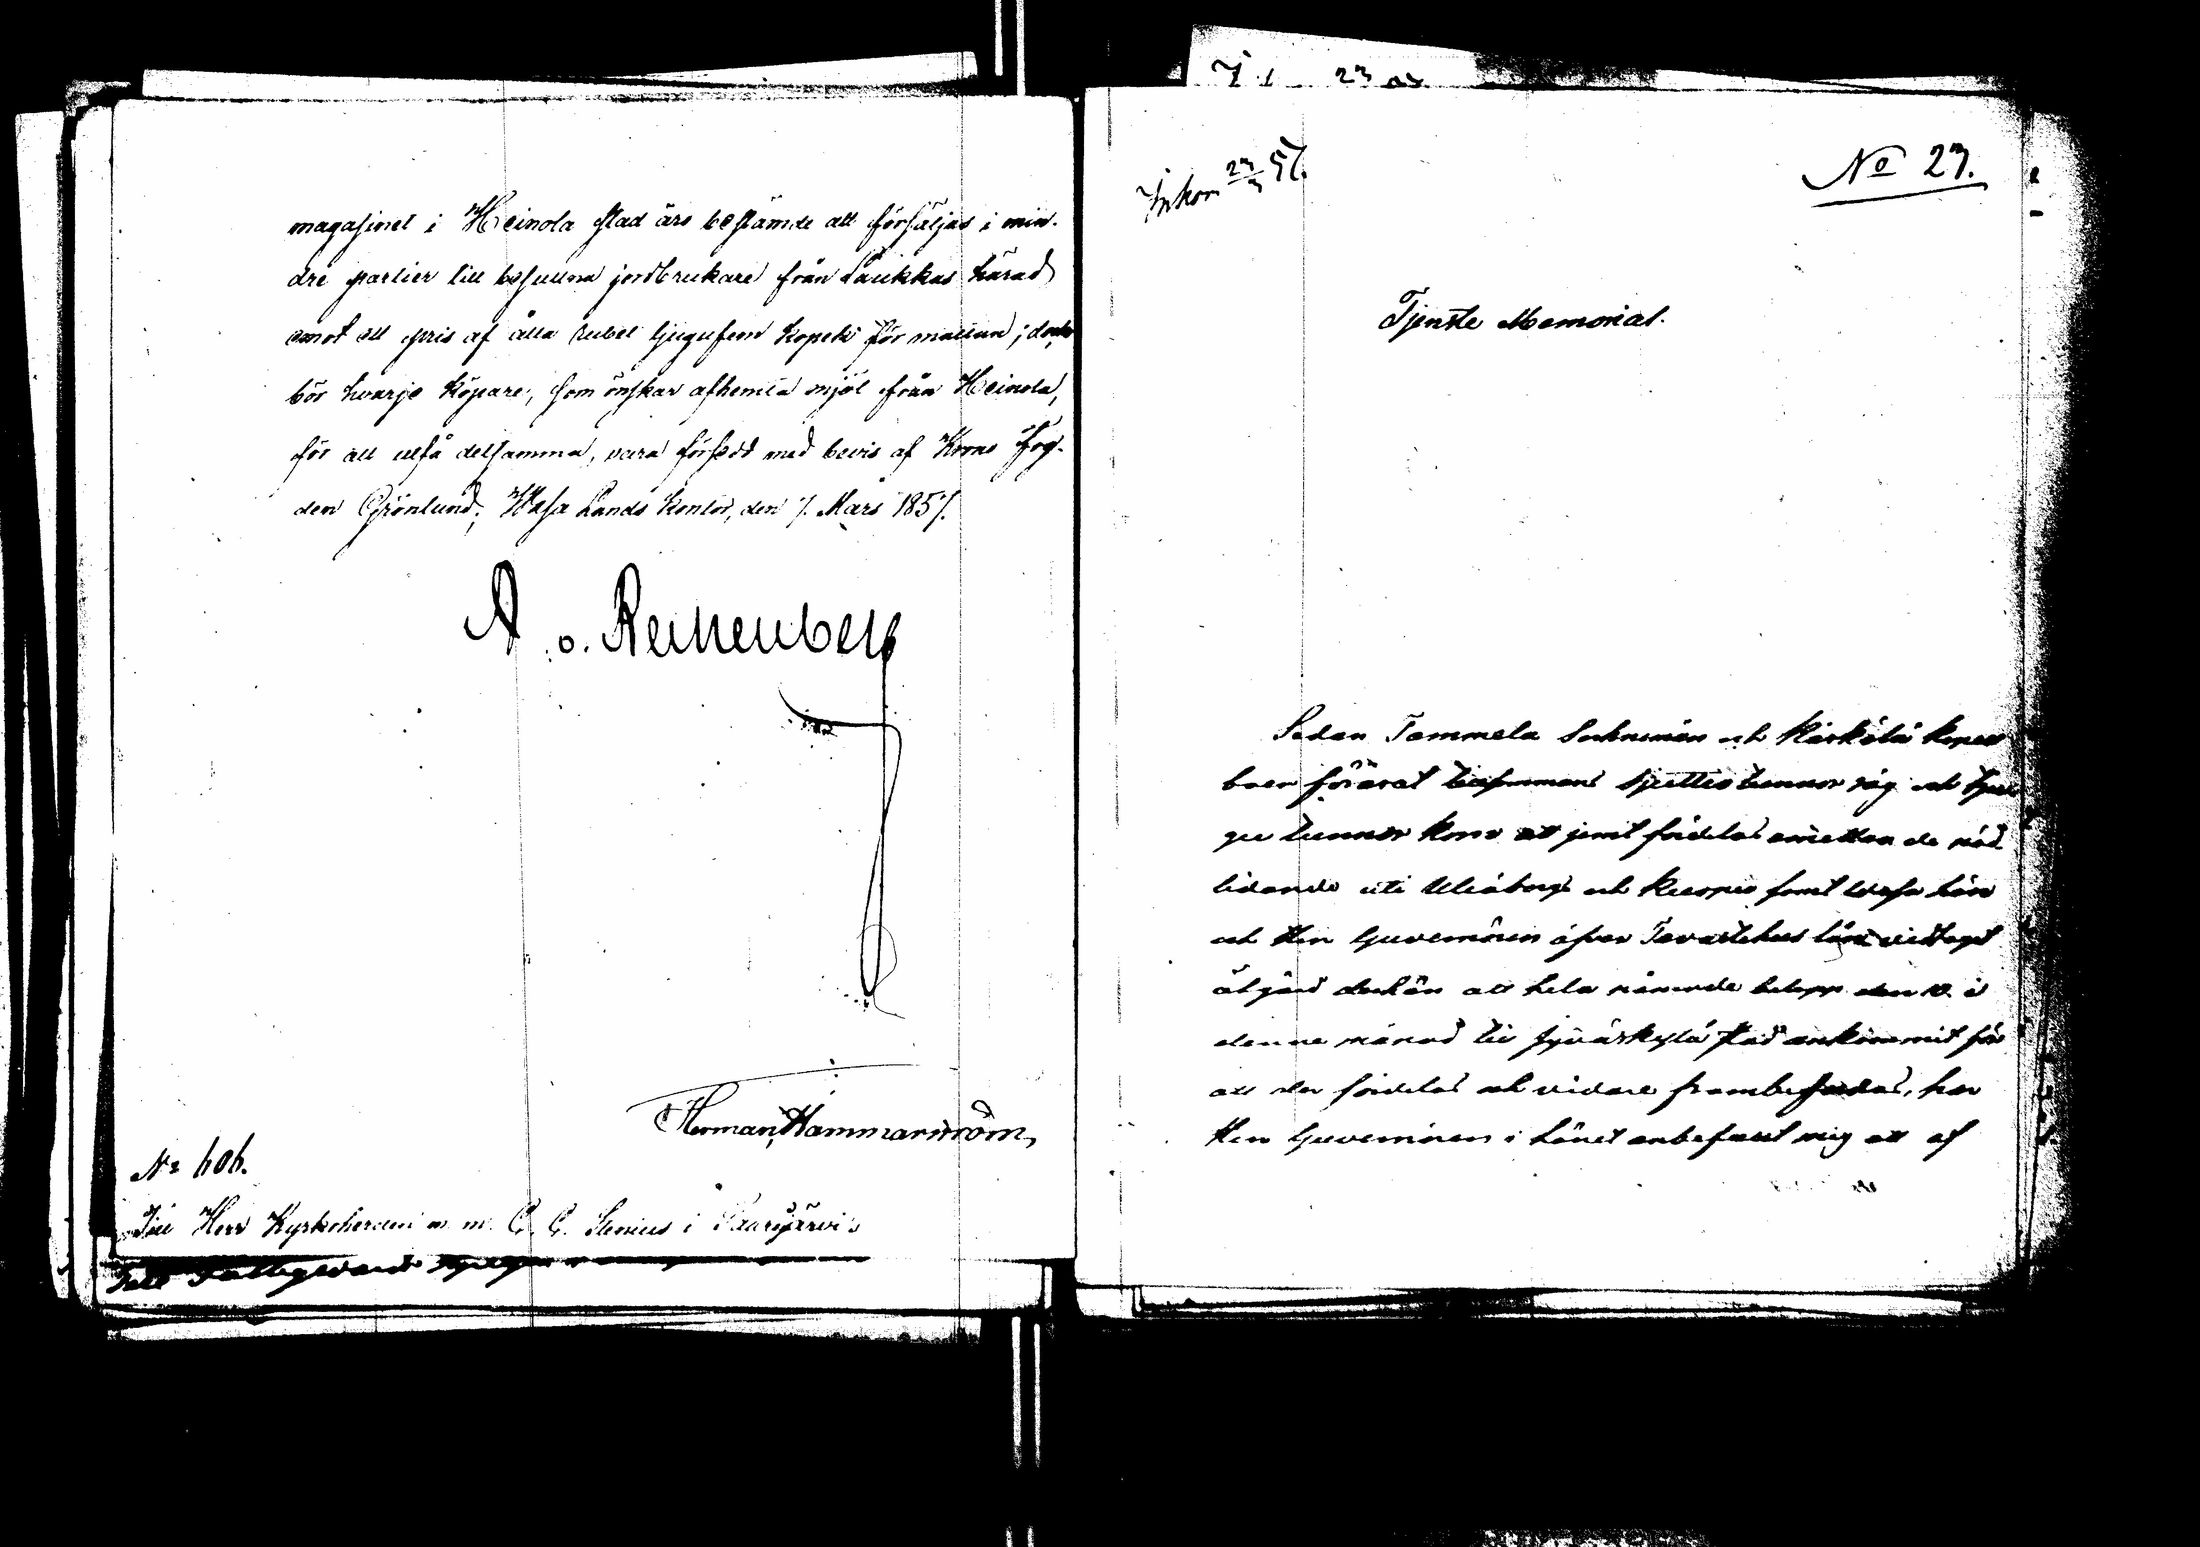 magasinet i Heinola stad äro bestämde att försäljas i min-
dre partier till besuttna jordbrukare från Laukkas härad
emot ett pris af åtta rubel tjugufem kopek för mattan; dock
bör hvarje köpare, som önskar afhemta mjöl från Heinola,
för att utfå detsamma, vara försedd med bevis af Krono Fog-
den Grönlund; Wasa Lands Kontor, den 7. Mars 1857.
Herman Hammarström
No 606.
Till Herr Kyrkoherden m. m. C. C. Stenius i Saarijärvi
Inkom 23/3 57.
No 27.
Tjenste Memorial.
Sedan Tammela Socknemän och Kärkölä
boer förärat tillsammans sjuttio tunnor råg och tju-
gu tunnor korn att jemt fördelas emellan de nöd-
lidande uti Uleåborgs och Kuopio samt Wasa Län
och Herr Guvernören öfver Tavastehus län vidtagit
åtgärd derhän att hela nämnde belopp den 10 i
denne månad till Jyväskylä stad ankommit för
att der fördelas och vidare frambefordras, har
Herr Guvernören i länet anbefallt mig att af